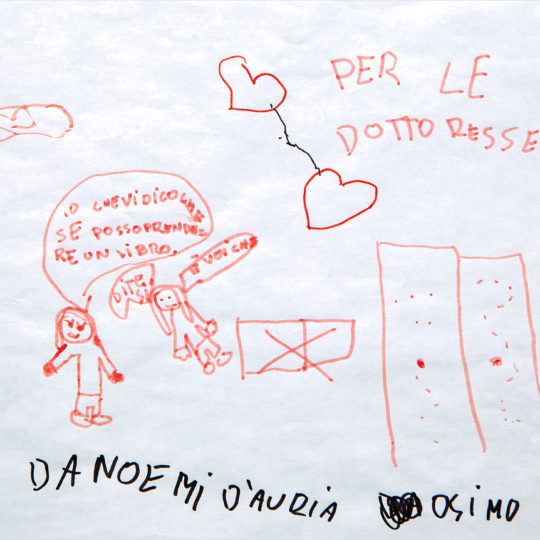 PER LE
DOTTORESSE
IO CHE VI DICO CHE
SE POSSO PRENDE-
RE UN LIBRO.
DITE
SI
E VOI CHE
DA NOEMI D'AURIA OSIMO